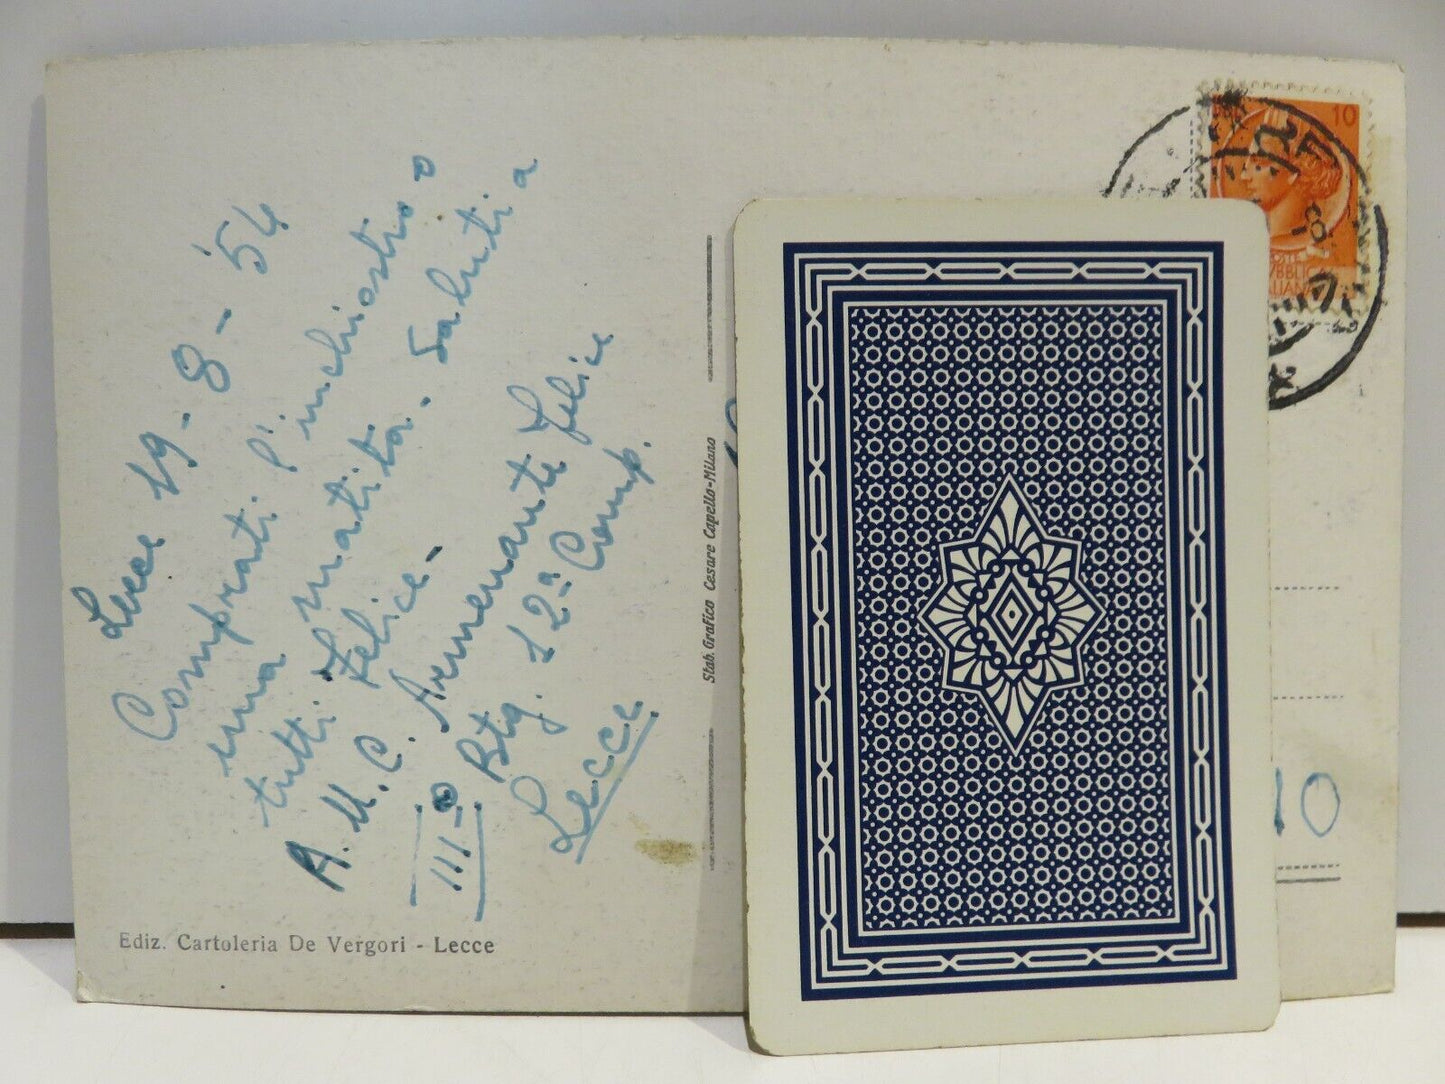 Lecce 19-8-'54
Comprati l'inchiostro o
una matita. Saluti a
tutti. Felice -
A.U.C. Felice
III° Btg. 12ª Comp.
Lecce
Ediz. Cartoleria De Vergori - Lecce
Stab. Grafico Cesare Capello - Milano
10
POSTE
10